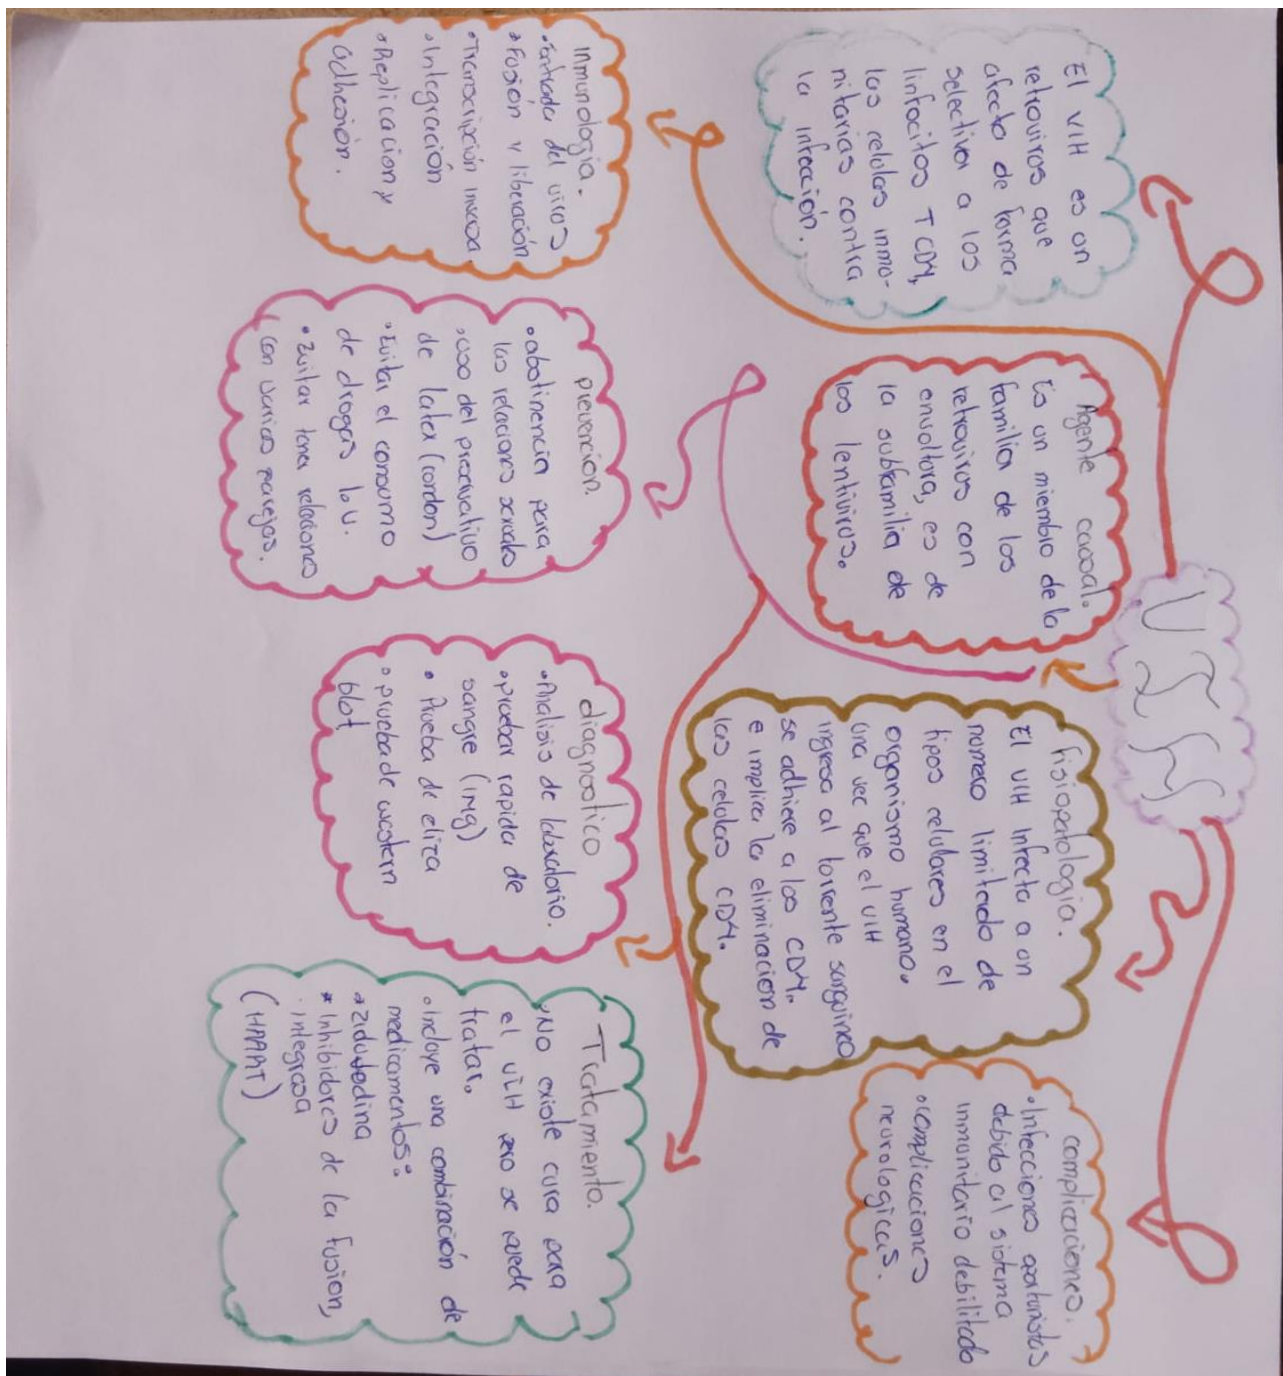 VIH
El VIH es un
retrovirus que
afecta de forma
selectiva a los
linfocitos T CD4,
las celulas inmu-
nitarias contra
la infección.
Agente causal.
Es un miembro de la
familia de los
retrovirus con
envoltura, es de
la subfamilia de
los lentivirus.
fisiopatologia.
El VIH infecta a un
numero limitado de
tipos celulares en el
organismo humano.
una vez que el VIH
ingresa al torrente sanguineo
se adhiere a los CD4.
e implica la eliminacion de
las celulas CD4.
complicaciones.
• Infecciones oportunistas
debido al sistema
inmunitario debilitado
• complicaciones
neurologicas.
inmunologia.
• Entrada del virus
• Fusión y liberación
• Transcripción inversa
• Integración
• Replicacion y
adhesión.
prevencion.
• abstinencia para
las relaciones sexuales
• uso del preservativo
de latex (condon)
• Evitar el consumo
de drogas I.V.
• Evitar tener relaciones
con varias parejas.
diagnostico
• Analisis de laboratorio.
• prueba rapida de
sangre (img)
• Prueba de eliza
• prueba de western
blot
Tratamiento.
• No existe cura para
el VIH pero se puede
tratar.
• Incluye una combinación de
medicamentos:
* Zidovudina
* Inhibidores de la fusion,
integrasa
(HAART)